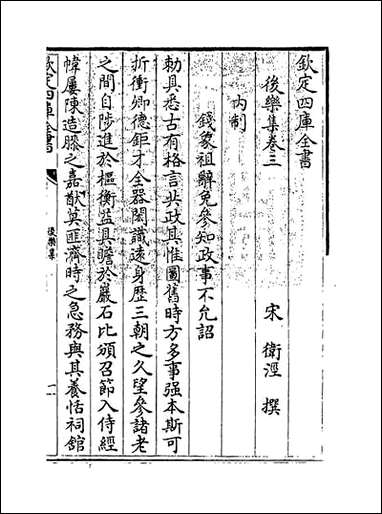 欽定四庫全書
後樂集卷三
宋 衛涇 撰
內制
錢象祖辭免參知政事不允詔
勅具悉古有格言共政其惟圖舊時方多事强本斯可
折衝卿德鉅才全器閎識遠身歷三朝之久望參諸老
之間自陟進於樞衡益具瞻於巖石比頒召節入侍經
幃屢陳造膝之嘉猷莫匪濟時之急務與其養恬祠館
欽定四庫全書
後樂集
一